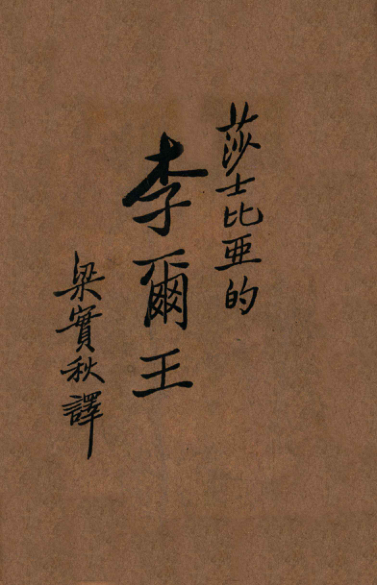 莎士比亜的
李爾王
梁實秋譯